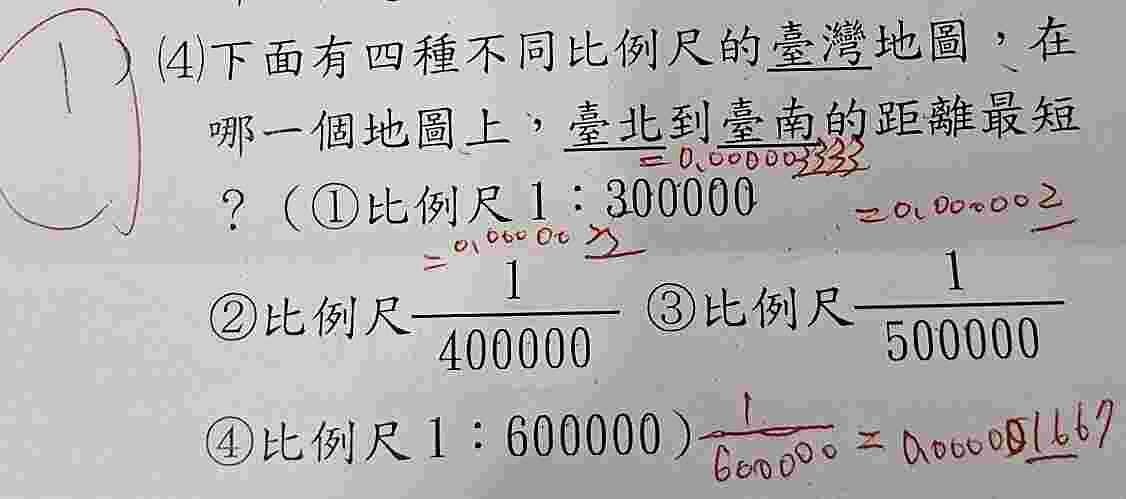 1 ) (4)下面有四種不同比例尺的臺灣地圖，在
哪一個地圖上，臺北到臺南的距離最短
= 0.000003333
? (①比例尺 1：300000
= 0.000002
②比例尺 1/400000 ③比例尺 1/500000
④比例尺 1：600000) 1/600000 = 0.000001667